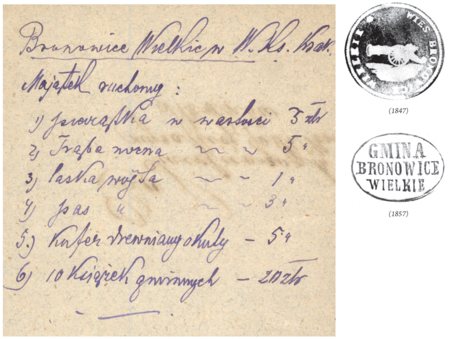 Bronowice Wielkie w W. Ks. Krak.
Majątek ruchomy:
1) pieczątka w wartości 3 złr
2) Trąba nocna " " 5 "
3) laska wójta " " 1 "
4) pas " " " 3 "
5.) Kufer drewniany okuty – 5 "
6) 10 Książek gminnych – 20 złr
WIELKIE WIEŚ BRONOWICE
(1847)
GMINA
BRONOWICE
WIELKIE
(1857)